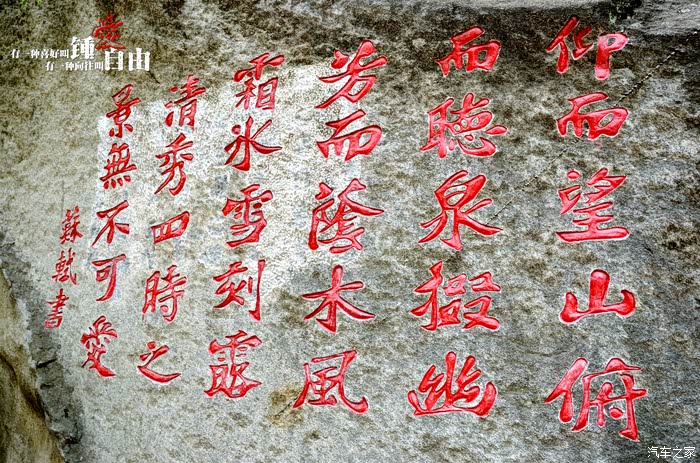 仰而望山俯
而聽泉掇幽
芳而蔭木風
霜冰雪刻露
清秀四時之
景無不可愛
蘇軾書
有一种喜好叫鍾愛
有一种向往叫自由
汽车之家